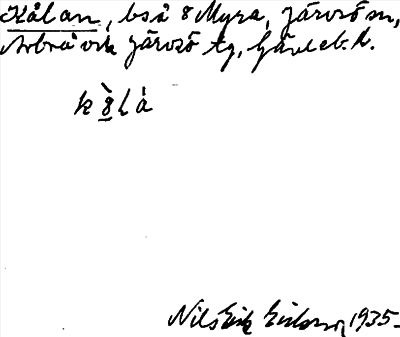 Kålan, bs å 8 Myra, Järvsö sn,
Arbrå och Järvsö tg, Gävleb. l.
k 8̀ l à
Nils Erik Eriksson 1935